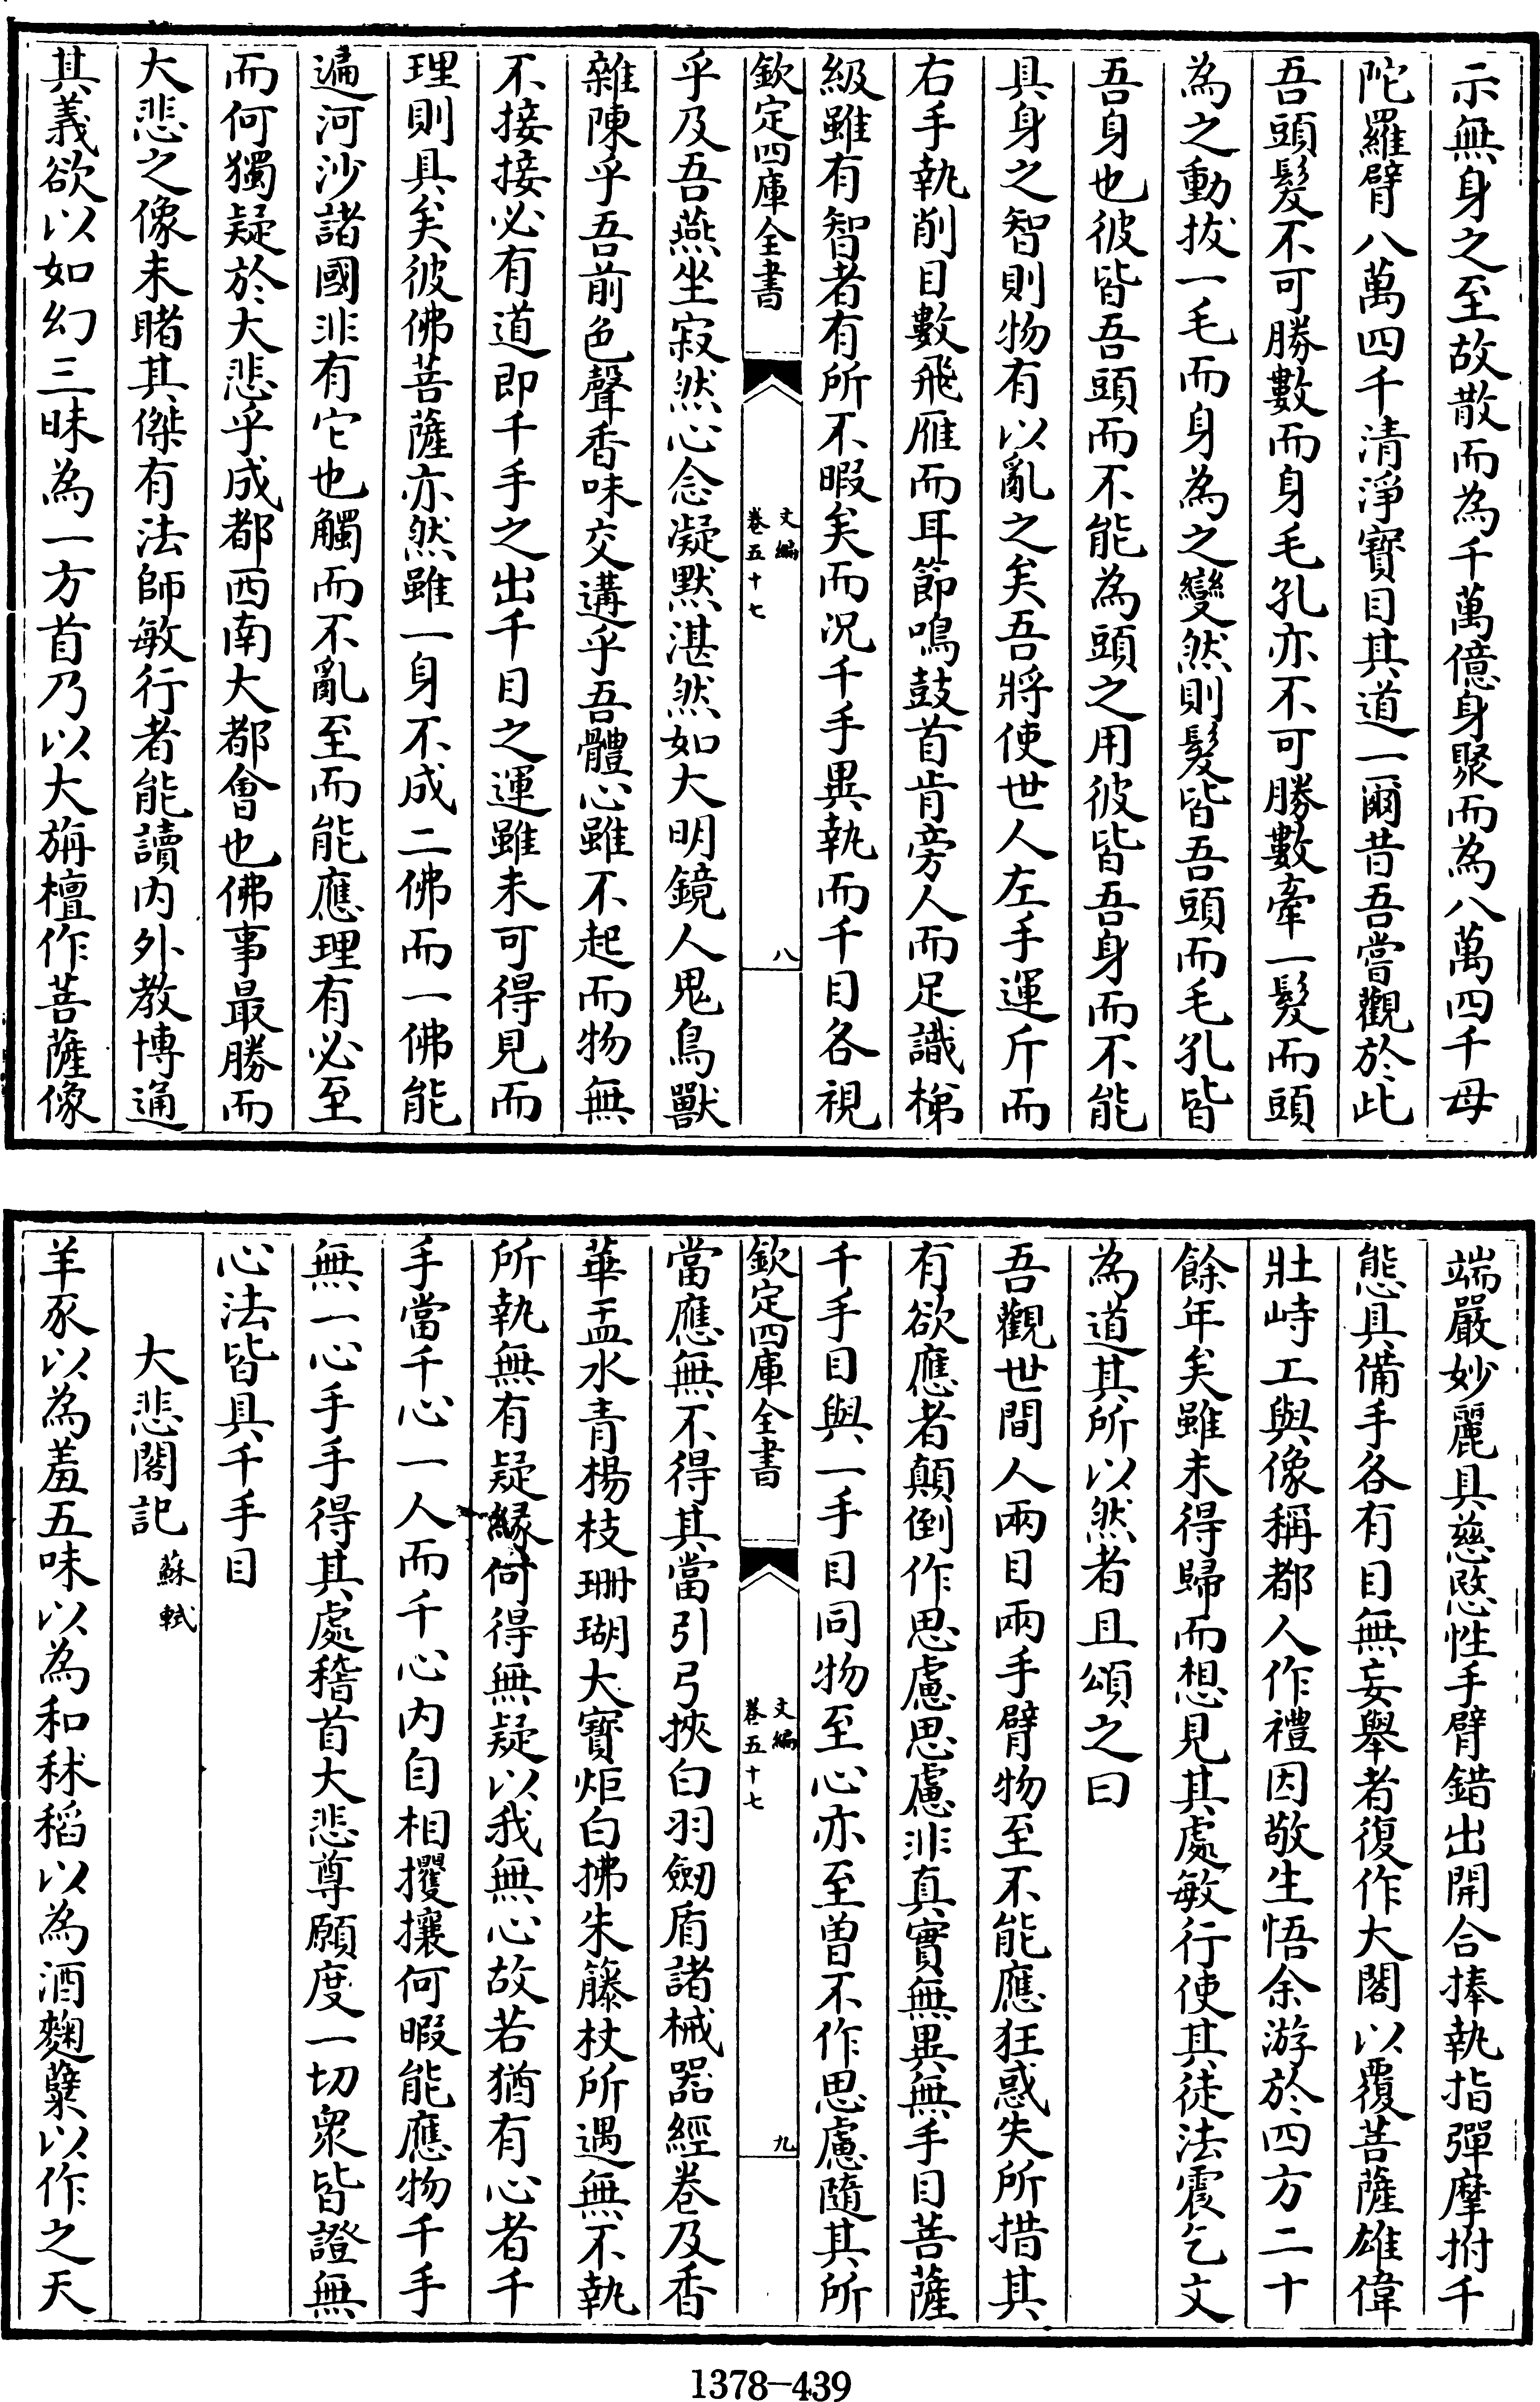 示無身之至故散而為千萬億身聚而為八萬四千母
陀羅臂八萬四千清淨寶目其道一爾昔吾嘗觀於此
吾頭髮不可勝數而身毛孔亦不可勝數牽一髮而頭
為之動拔一毛而身為之變然則髮皆吾頭而毛孔皆
吾身也彼皆吾頭而不能為頭之用彼皆吾身而不能
具身之智則物有以亂之矣吾將使世人左手運斤而
右手執削目數飛雁而耳節鳴鼓首肯旁人而足識梯
級雖有智者有所不暇矣而況千手異執而千目各視
欽定四庫全書
文編
卷五十七
八
乎及吾燕坐寂然心念凝默湛然如大明鏡人鬼鳥獸
雜陳乎吾前色聲香味交遘乎吾體心雖不起而物無
不接接必有道即千手之出千目之運雖未可得見而
理則具矣彼佛菩薩亦然雖一身不成二佛而一佛能
遍河沙諸國非有它也觸而不亂至而能應理有必至
而何獨疑於大悲乎成都西南大都會也佛事最勝而
大悲之像未睹其傑有法師敏行者能讀內外教博通
其義欲以如幻三昧為一方首乃以大旃檀作菩薩像
端嚴妙麗具慈愍性手臂錯出開合捧執指彈摩拊千
態具備手各有目無妄舉者復作大閣以覆菩薩雄偉
壯峙工與像稱都人作禮因敬生悟余游於四方二十
餘年矣雖未得歸而想見其處敏行使其徒法震乞文
為道其所以然者且頌之曰
吾觀世間人兩目兩手臂物至不能應狂惑失所措其
有欲應者顛倒作思慮思慮非真實無異無手目菩薩
千手目與一手目同物至心亦至曾不作思慮隨其所
欽定四庫全書
文編
卷五十七
九
當應無不得其當引弓挾白羽劒盾諸械器經卷及香
華盂水青楊枝珊瑚大寶炬白拂朱籐杖所遇無不執
所執無有疑緣何得無疑以我無心故若猶有心者千
手當千心一人而千心內自相攫攘何暇能應物千手
無一心手手得其處稽首大悲尊願度一切衆皆證無
心法皆具千手目
大悲閣記 蘇軾
羊豕以為羞五味以為和秫稻以為酒麴糵以作之天
1378-439